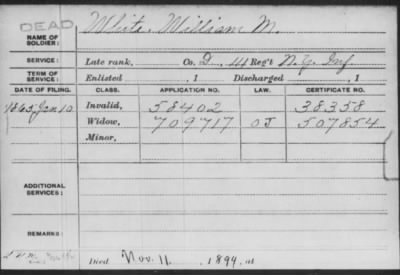 DEAD
NAME OF SOLDIER: White, William M.
SERVICE: Late rank, Co. D, 44 Reg't N.Y. Inf.
TERM OF SERVICE: Enlisted , 1 Discharged , 1
DATE OF FILING. CLASS. APPLICATION NO. LAW. CERTIFICATE NO.
1865 Jan 10 Invalid, 58402 38358
Widow, 709717 OJ 507854
Minor,
ADDITIONAL SERVICES:
REMARKS:
Died Nov. 11, 1899, at